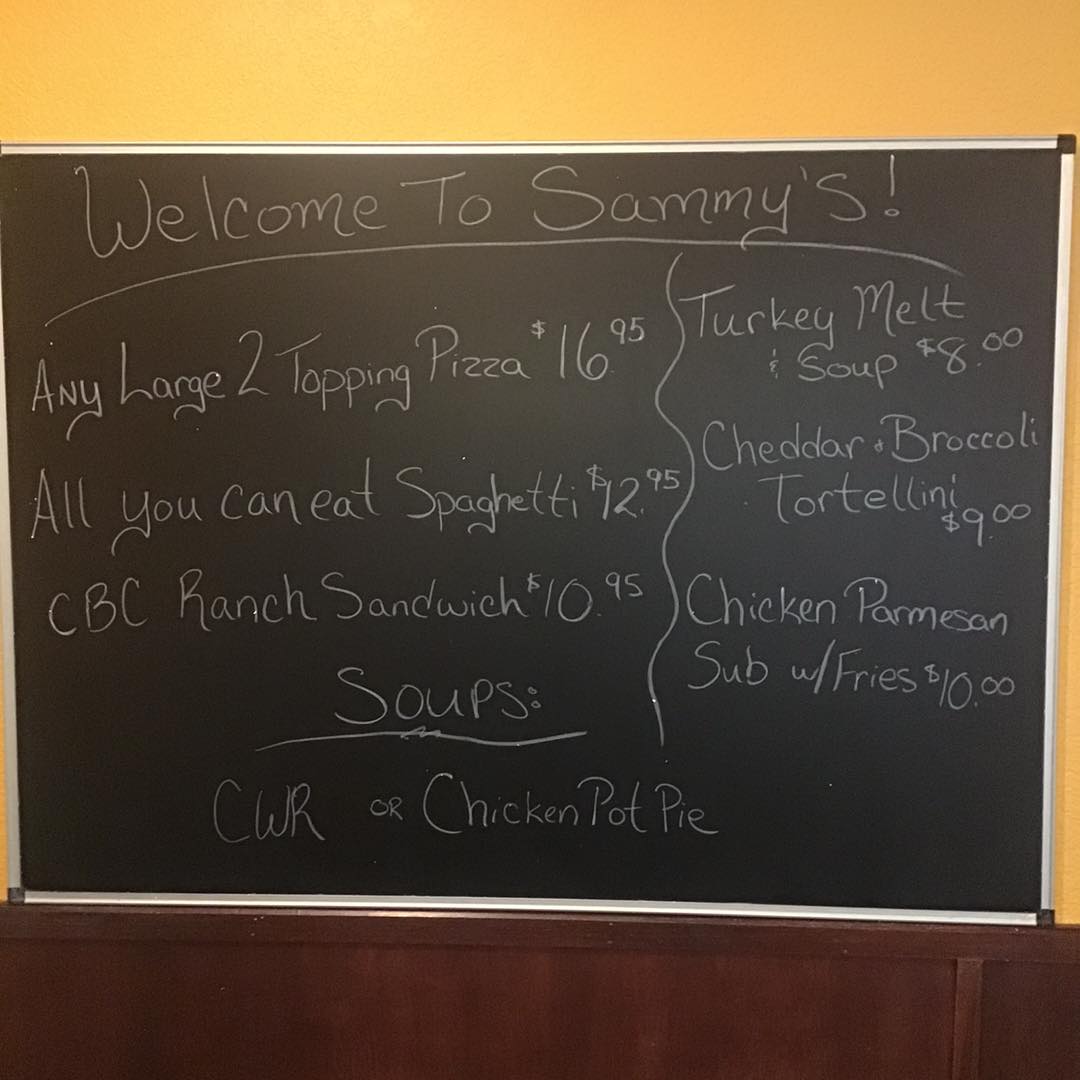 Welcome To Sammy's!
Any Large 2 Topping Pizza $16.95
All you can eat Spaghetti $12.95
CBC Ranch Sandwich $10.95
Soups:
CWR or Chicken Pot Pie
Turkey Melt
& Soup $8.00
Cheddar & Broccoli
Tortellini
$9.00
Chicken Parmesan
Sub w/Fries $10.00